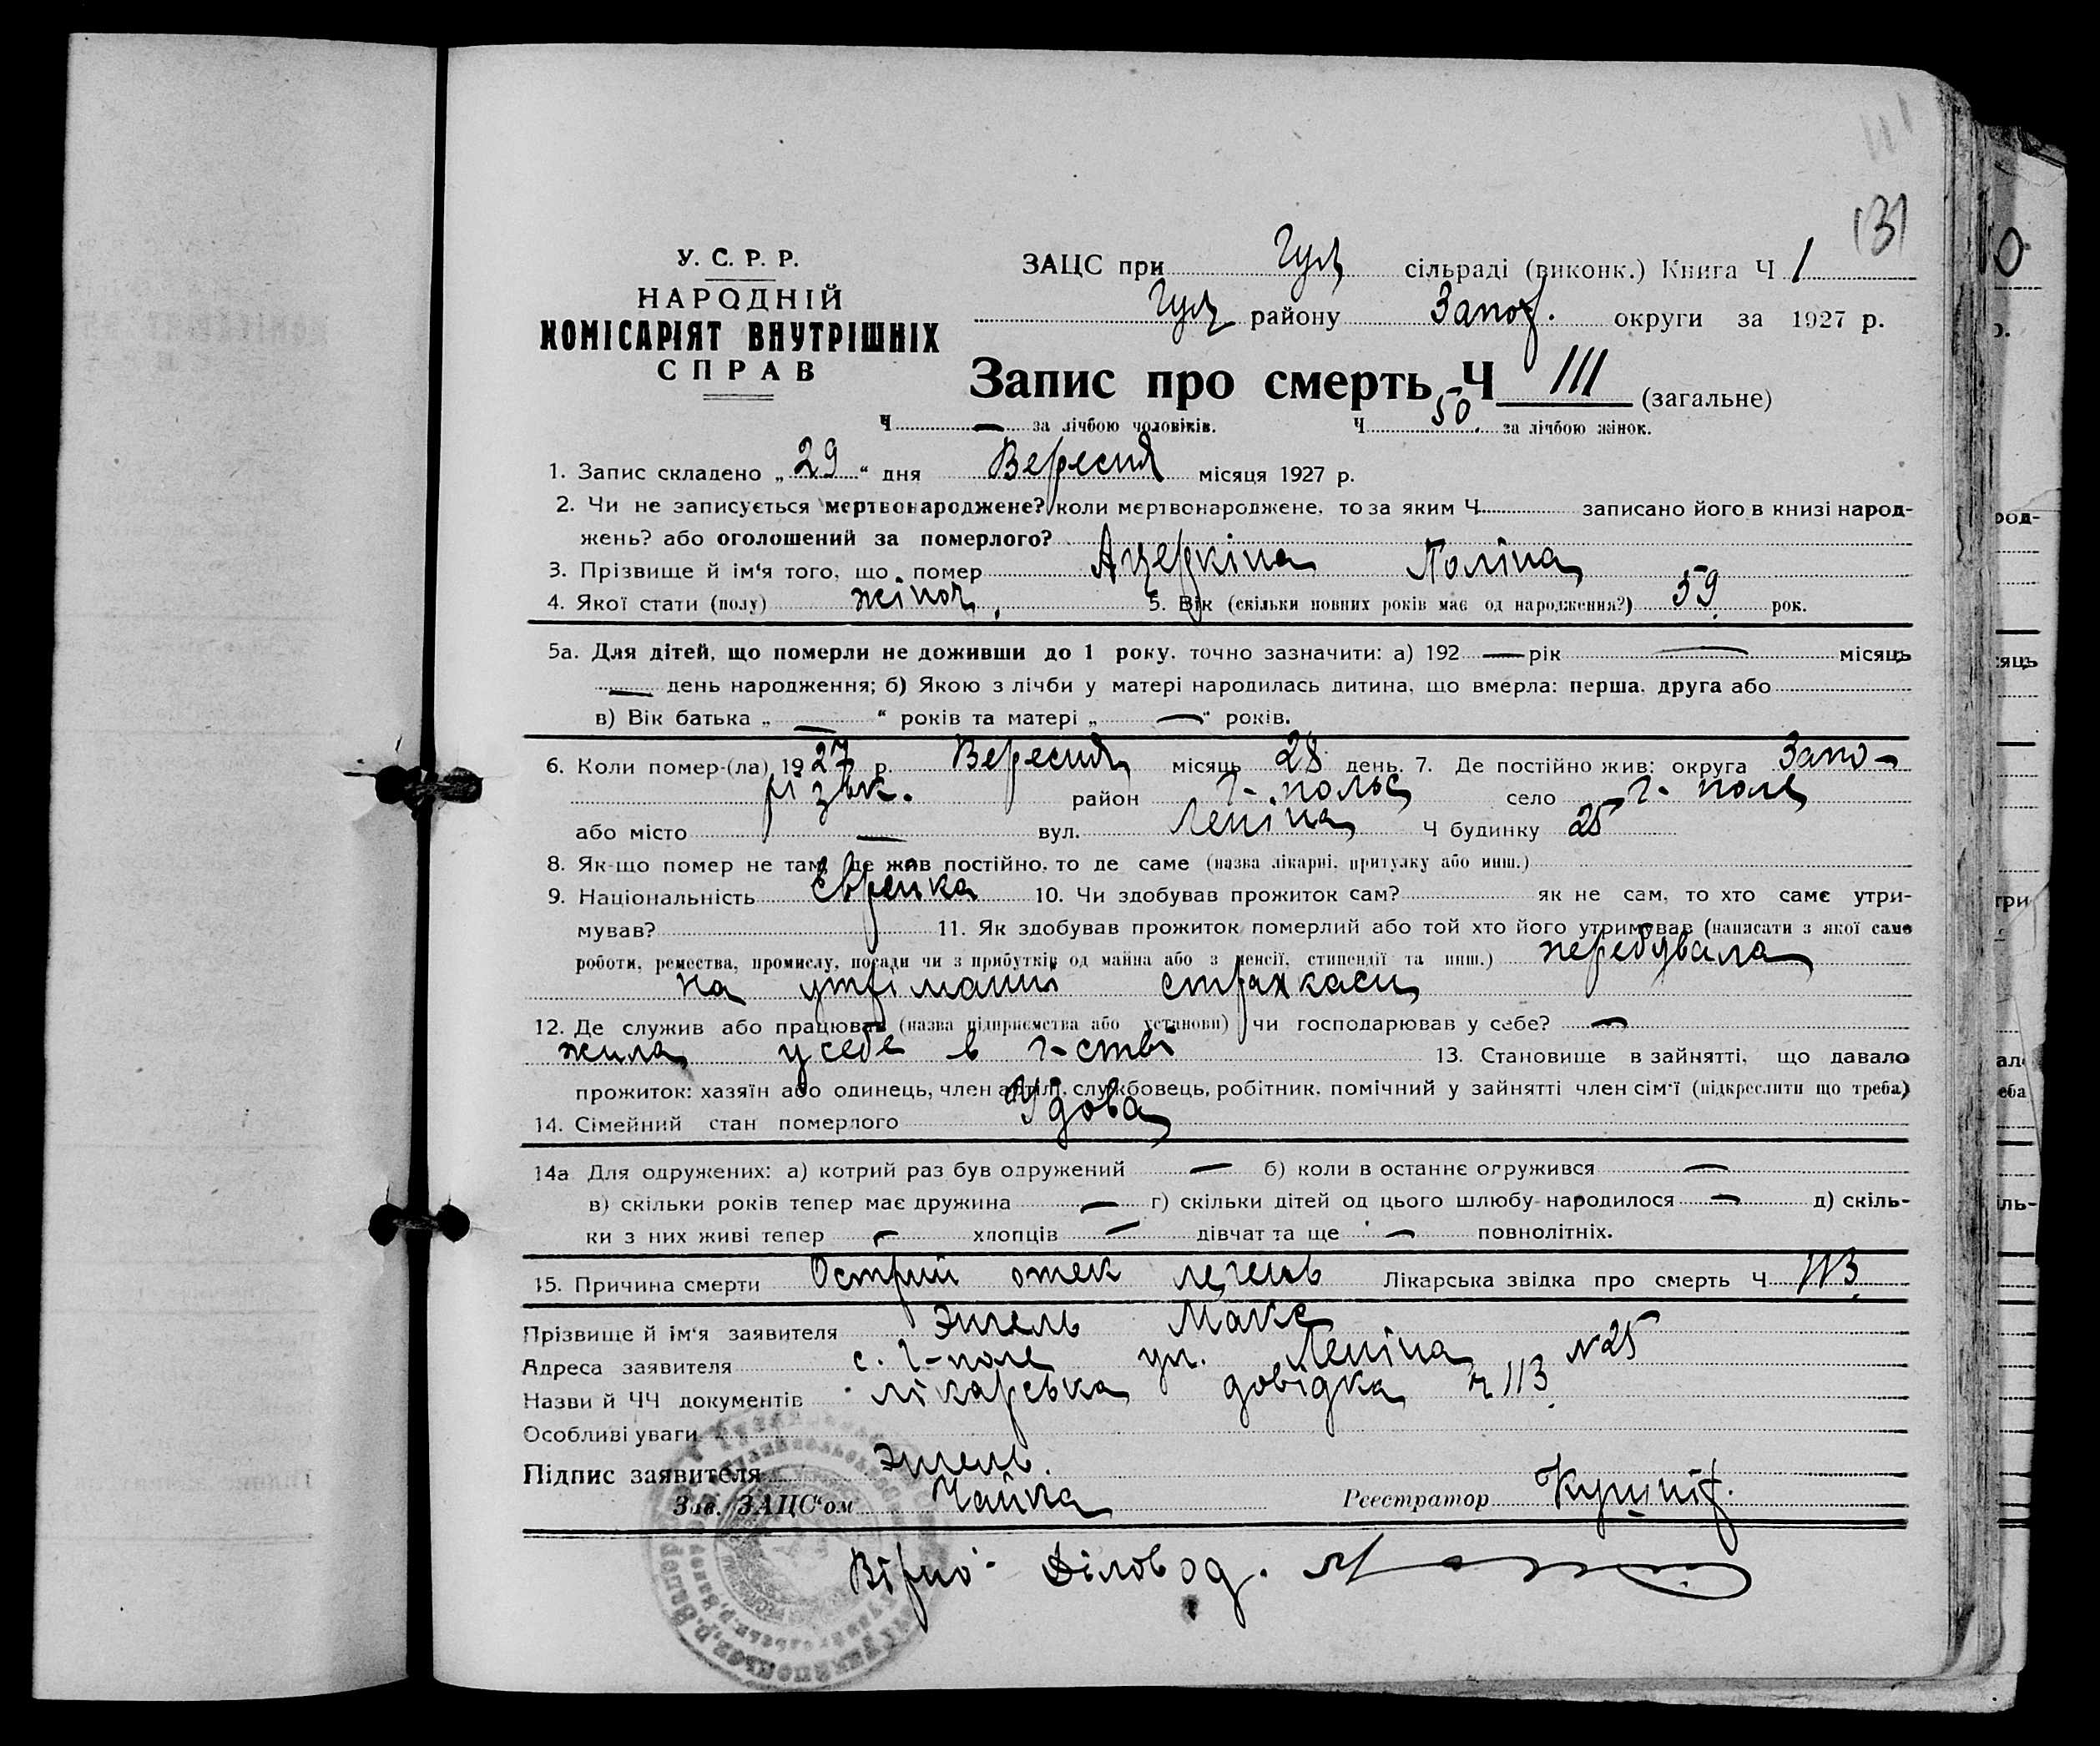 111
131
У. С. Р. Р.
НАРОДНІЙ
КОМІСАРІЯТ ВНУТРІШНІХ
СПРАВ
ЗАЦС при Гул сільраді (виконк.) Книга Ч 1
Гул району Запор. округи за 1927 р.
Запис про смерть Ч 111 (загальне)
Ч — за лічбою чоловіків. Ч 50 за лічбою жінок.
1. Запис складено „ 29 “ дня Вересня місяця 1927 р.
2. Чи не записується мертвонароджене? коли мертвонароджене, то за яким Ч записано його в книзі народ-
жень? або оголошений за померлого?
3. Прізвище й ім‘я того, що помер Ацеркіна Поліна
4. Якої стати (полу) жіноч. 5. Вік (скільки повних років має од народження?) 59 рок.
5а. Для дітей, що померли не доживши до 1 року, точно зазначити: а) 192 — рік — місяць
— день народження; б) Якою з лічби у матері народилась дитина, що вмерла: перша, друга або
в) Вік батька „ — “ років та матері „ — “ років.
6. Коли помер-(ла) 1927 р. Вересня місяць 28 день. 7. Де постійно жив: округа Запо-
різьк. район Г-польс село Г-поле
або місто — вул. Леніна Ч будинку 25
8. Як-що помер не там, де жив постійно, то де саме (назва лікарні, притулку або инш.)
9. Національність Єврейка 10. Чи здобував прожиток сам? як не сам, то хто саме утри-
мував? 11. Як здобував прожиток померлий або той хто його утримував (написати з якої саме
роботи, ремества, промислу, посади чи з прибутків од майна або з пенсії, стипендії та инш.) перебувала
на утріманні страхкаси
12. Де служив або працював (назва підприємства або установи) чи господарював у себе? —
жила у себе в г-стві 13. Становище в зайнятті, що давало
прожиток: хазяїн або одинець, член артілі, службовець, робітник, помічний у зайнятті член сім‘ї (підкреслити що треба)
14. Сімейний стан померлого Удова
14а Для одружених: а) котрий раз був одружений — б) коли в останнє одружився —
в) скільки років тепер має дружина — г) скільки дітей од цього шлюбу народилося — д) скіль-
ки з них живі тепер — хлопців — дівчат та ще — повнолітніх.
15. Причина смерти Острий отек легень Лікарська звідка про смерть Ч 113
Прізвище й ім‘я заявителя Энгель Макс
Адреса заявителя с. Г-поле ул. Леніна №25
Назви й ЧЧ документів лікарська довідка ч 113
Особливі уваги
Підпис заявителя Энгель.
Зав. ЗАЦС‘ом Чайка Реєстратор Кушнір.
Вірно: Діловод.